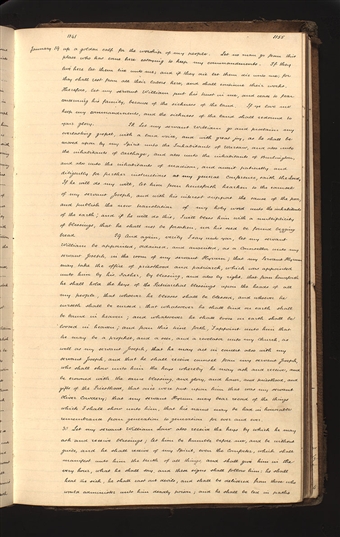 1841 1155
January 19 up a golden calf for the worship of my people. Let no man go from this
place who has come here essaying to keep my commandments. If they
live here let them live unto me; and if they die let them die unto me; for
they shall rest from all their labors here, and shall continue their works.
Therefore, let my servant William put his trust in me, and cease to fear
concerning his family, because of the sickness of the land. If ye love me
keep my commandments, and the sickness of the land shall redound to
your glory. Let my servant William go and proclaim my
everlasting gospel, with a loud voice, and with great joy, as he shall be
moved upon by my Spirit unto the Inhabitants of Warsaw, and also unto
the inhabitants of Carthage, and also unto the inhabitants of Burlington,
and also unto the inhabitants of Madison, and await patiently and
diligently for further instructions at my general Conference, saith the Lord,
If he will do my will, let him from henceforth hearken to the counsel
of my servant Joseph, and with his interest support the cause of the poor,
and publish the new translation of my holy word unto the inhabitants
of the earth; and if he will do this, I will bless him with a multiplicity
of blessings, that he shall not be forsaken, nor his seed be found begging
bread. And again, verily I say unto you, let my servant
William be appointed, ordained, and anointed, as a Counsellor unto my
servant Joseph, in the room of my servant Hyrum; that my Servant Hyrum
may take the office of priesthood and patriarch, which was appointed
unto him by his Father, by blessing, and also by right, that from henceforth
he shall hold the keys of the Patriarchal blessings upon the heads of all
my people, that whoever he blesses shall be blessed, and whoever he
curseth shall be cursed: that whatsoever he shall bind on earth shall
be bound in heaven; and whatsoever he shall loose on earth shall be
loosed in heaven; and from this time forth, I appoint unto him that
he may be a prophet, and a seer, and a revelator unto my Church, as
well as my servant Joseph, that he may act in concert also with my
servant Joseph, and that he shall receive counsel from my servant Joseph,
who shall shew unto him the keys whereby he may ask and receive, and
be crowned with the same blessing, and glory, and honor, and priesthood, and
gifts of the Priesthood, that once were put upon him that was my servant
Oliver Cowdery; that my servant Hyrum may bear record of the things
which I shall shew unto him, that his name may be had in honorable
remembrance from generation to generation, for ever and ever.
Let my servant William Law also receive the keys by which he may
ask and receive blessings; let him be humble before me, and be without
guile, and he shall receive of my Spirit, even the Comforter, which shall
manifest unto him the truth of all things, and shall give him in the
very hour, what he shall say, and these signs shall follow him; he shall
heal the sick, he shall cast out devils, and shall be delivered from those who
would administer unto him deadly poison; and he shall be led in paths